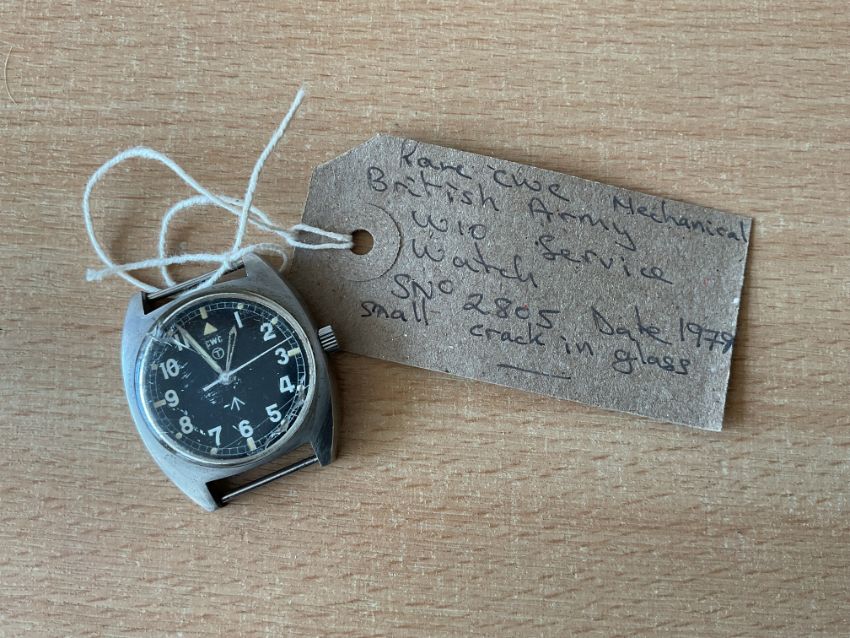 Rare CWC Mechanical
British Army
W10 Service
Watch
SNo 2805 Date 1979
small crack in glass
1
2
3
4
5
6
7
8
9
10
11
CWC
T